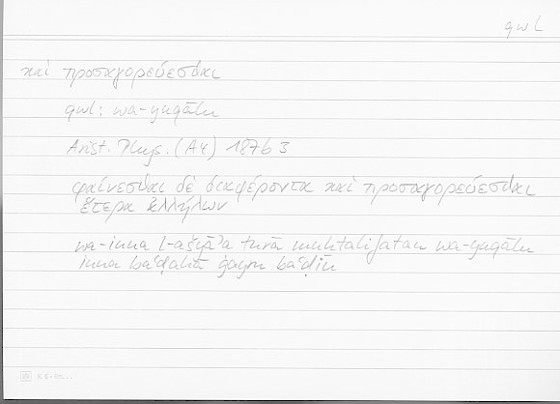 qwl
καὶ προσαγορεύεσθαι
qwl: wa-yuqālu
Arist. Phys. (A4) 187b3
φαίνεσθαι δὲ διαφέροντα καὶ προσαγορεύεσθαι
ἕτερα ἀλλήλων
wa-inna l-ašyāʾa turā muḫtalifatan wa-yuqālu
inna baʿḍahā ġayru baʿḍin